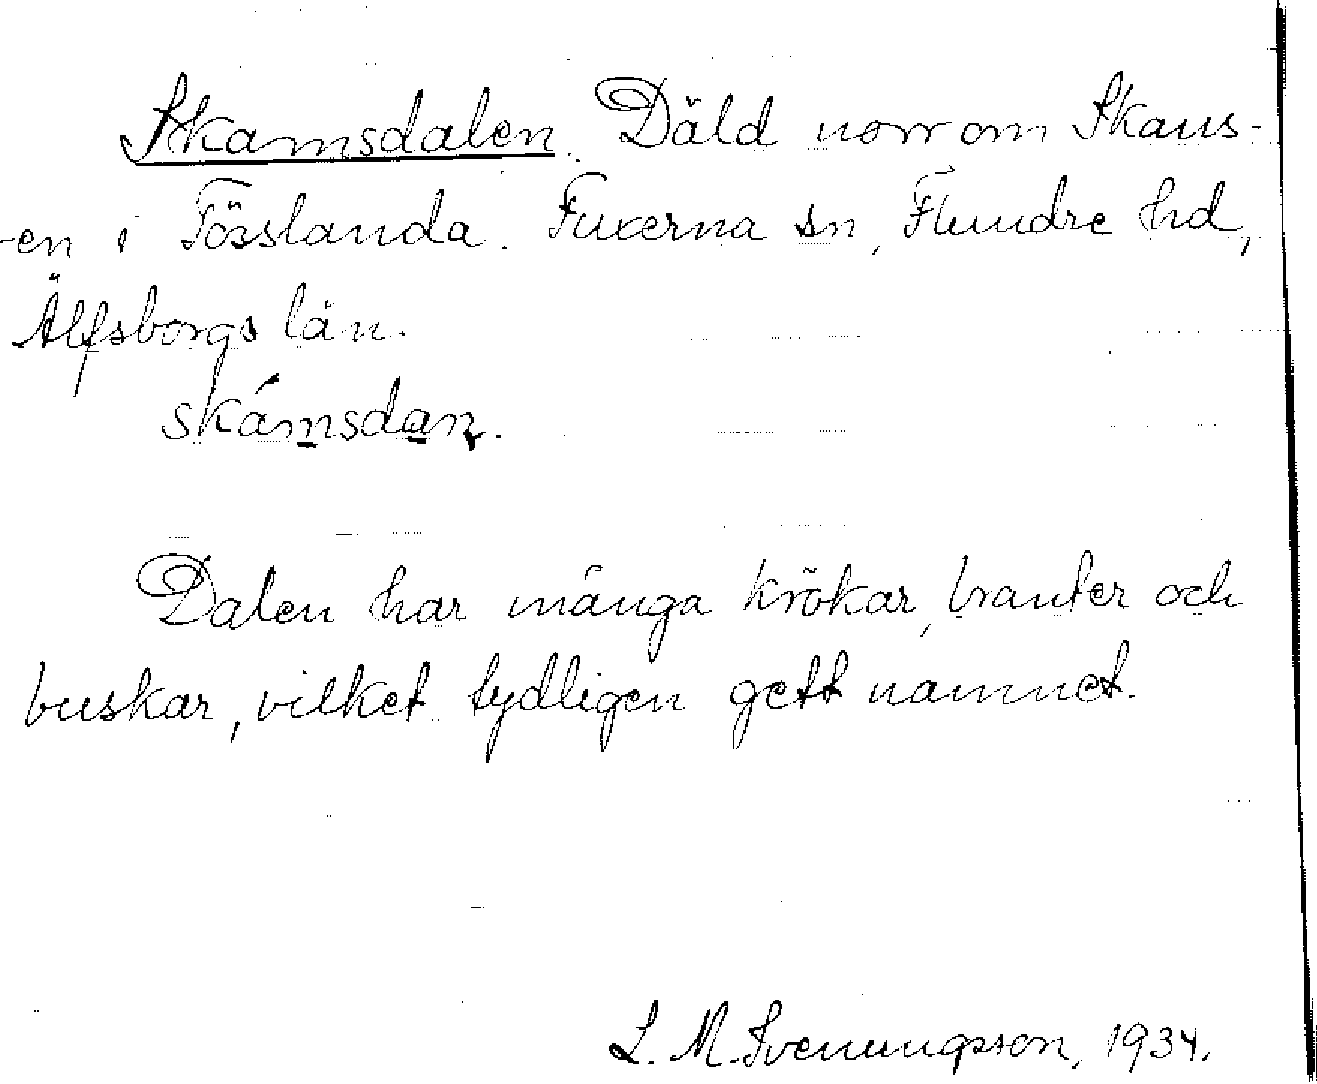 Skamsdalen. Däld norr om Skans-
-en i Tösslanda. Fuxerna sn, Flundre hd,
Älfsborgs län.
skámsdan.
Dalen har många krökar, branter och
buskar, vilket tydligen gett namnet.
L. M. Svenungsson, 1934.